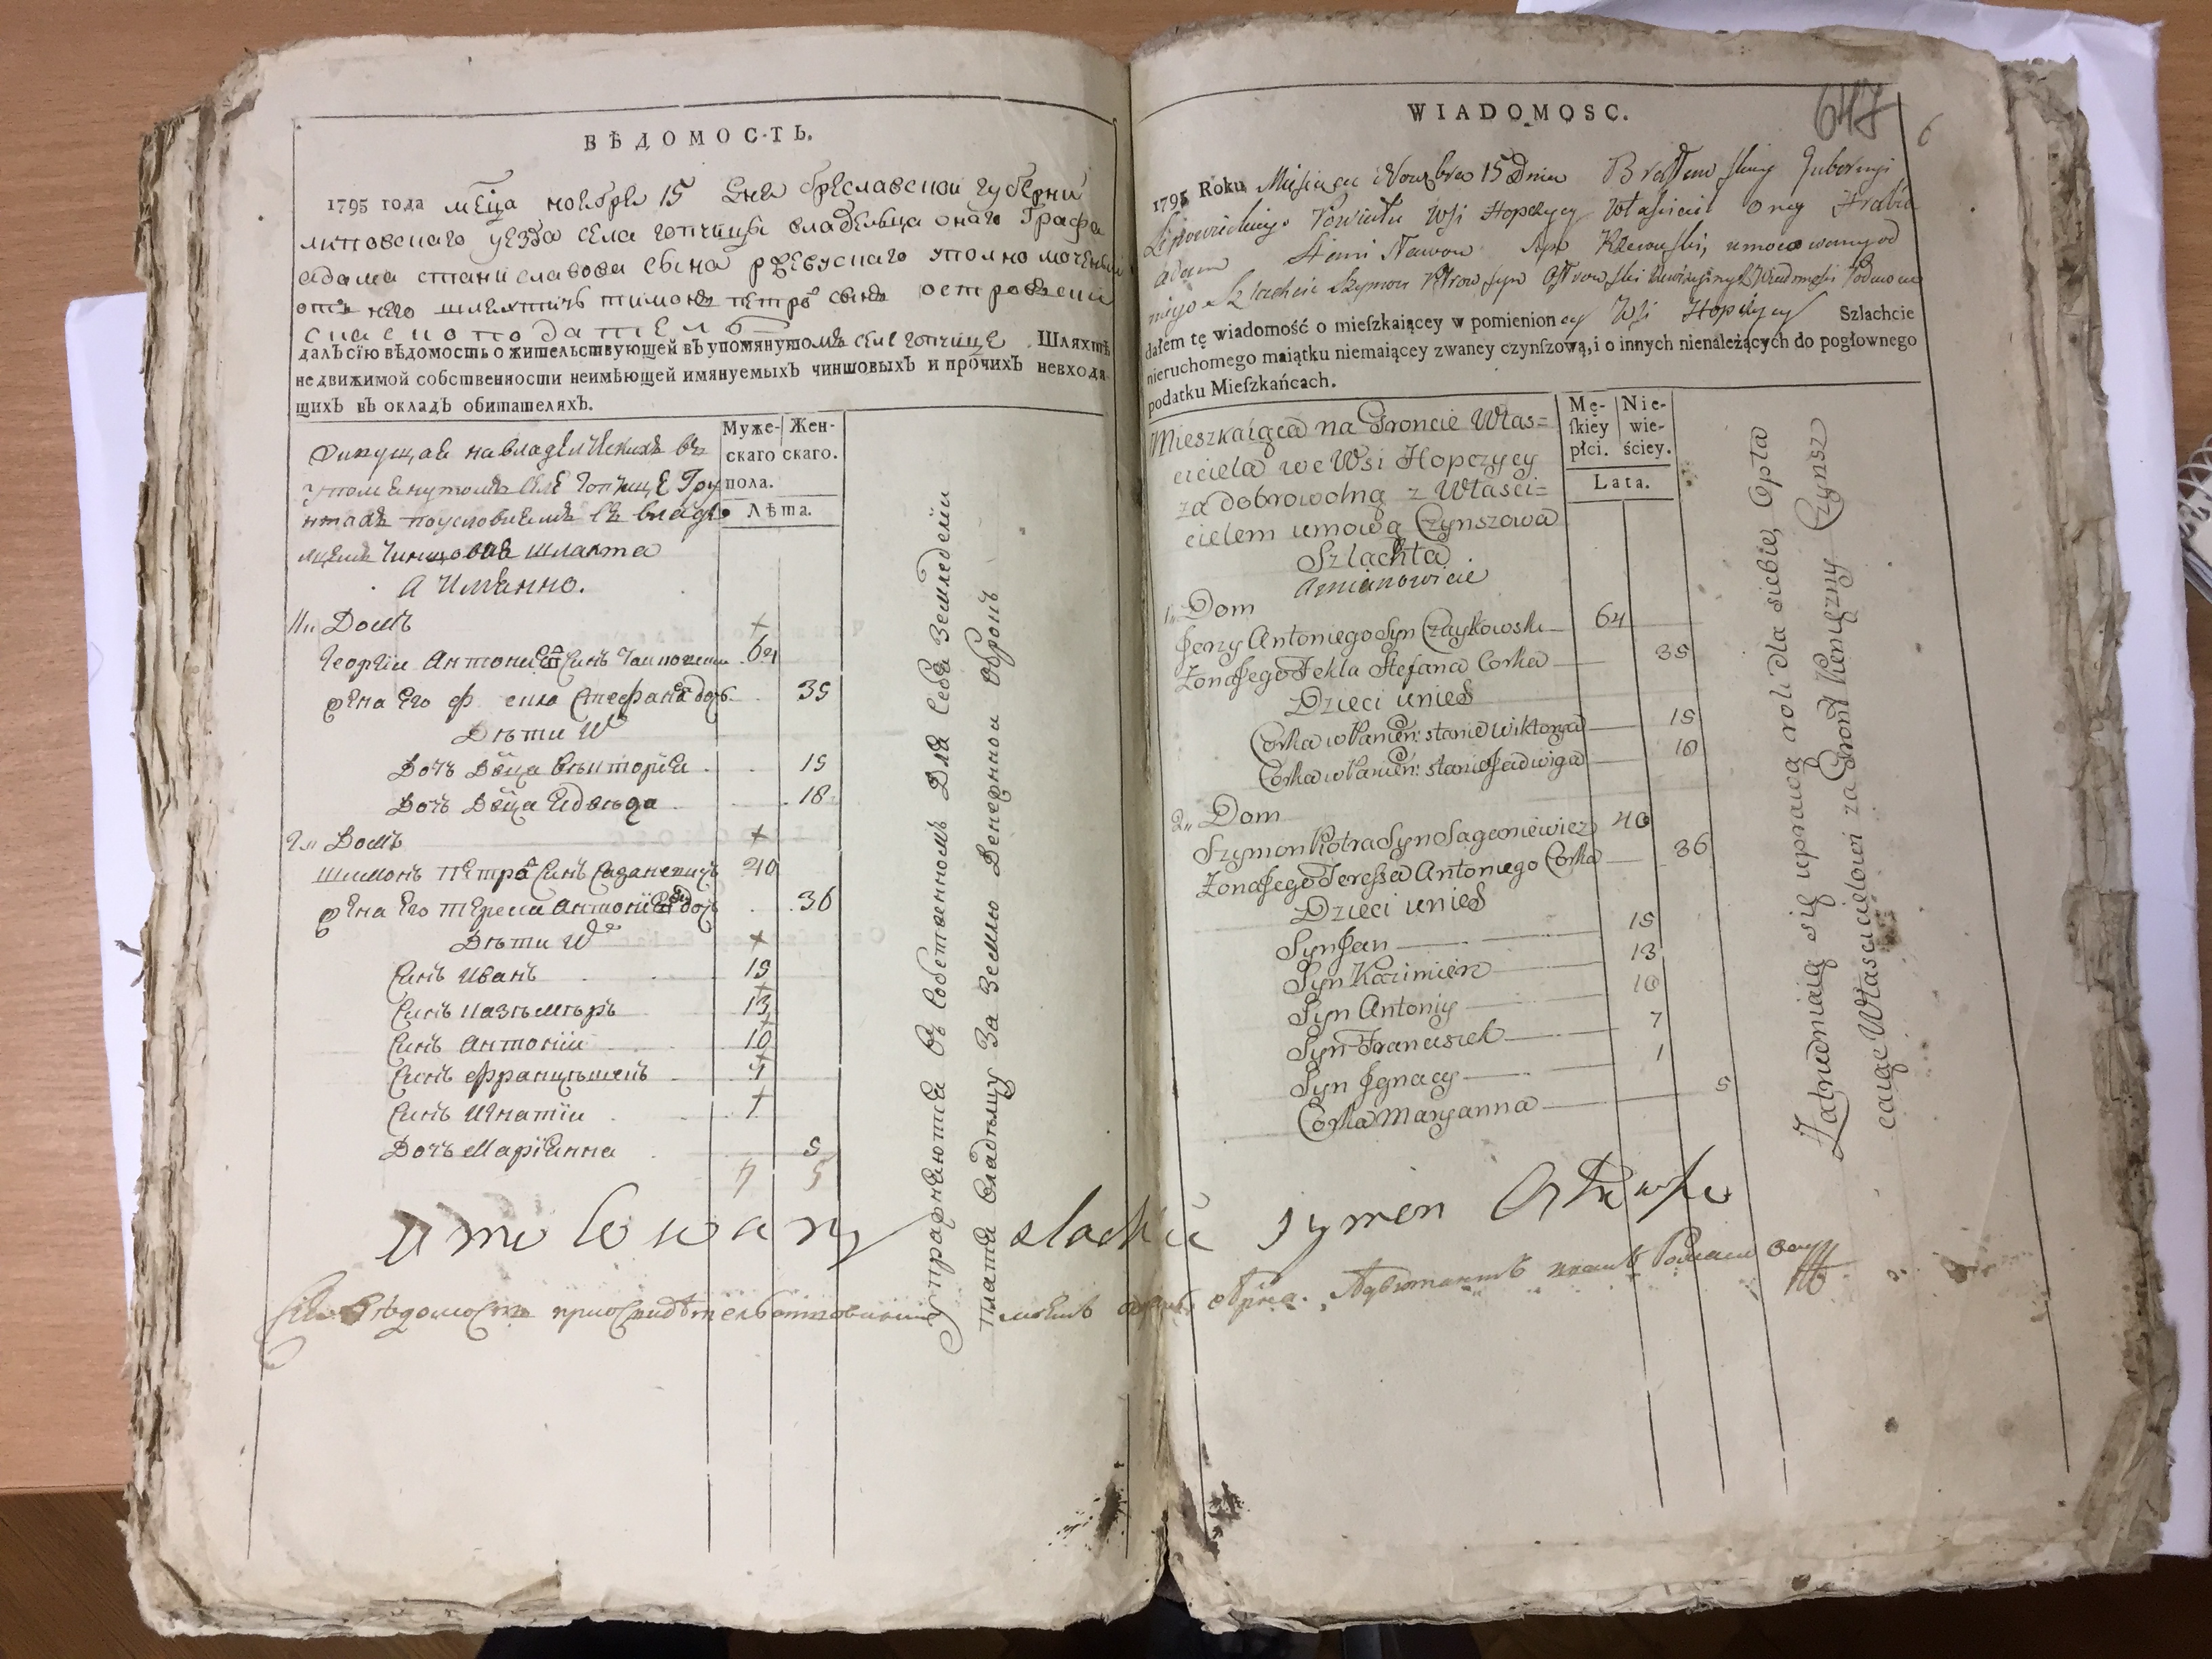 ВѢДОМОСТЬ.
1795 года мѣца ноебре 15 дне бреславской губерни
липовецкаго уезда села гопчицы владельца онаго Графа
адама станиславова сына ржевускаго уполномоченый
отъ него шляхтичь шимонъ петровъ сынъ островски
далъ сїю вѣдомость о жительствующей въ упомянутомъ селе гопчице Шляхтѣ
недвижимой собственности неимѣющей имянуемыхъ чиншовыхъ и прочихъ невходя
щихъ въ окладъ обитателяхъ.
Муже- Жен-
скаго скаго.
пола.
Лѣта.
Живущая на владелческихъ въ
упоменутомъ селе Гопчице Гру
нтахъ по условиемъ съ владе
лцемъ чиншовая шляхта
А Имѣнно.
1 Домъ
Георгїи Антониевъ Синъ Чаиковски 64
Жена его Фекла Стефана дочь 35
Дѣти их
Дочь дѣвца Викторїя 15
Дочь дѣвца Ядвига 18
2 Домъ
Шимонъ Петровъ Синъ Саганевичъ 40
Жена его Тереса Антонїева дочь 36
Дѣти их
Синъ Иванъ 15
Синъ Казѣмѣръ 13
Синъ Антонїи 10
Синъ Францѣшекъ 7
Синъ Игнатїи 1
Дочь Марїянна 5
7 5
Упражняются въ собственномъ для себя земледелїи
платя владѣлцу за землю денежнои оброкъ
WIADOMOSC.
647
6
1795 Roku Miesiąca Nowębra 15 Dnia Bracławskiey Gubernyi
Lipowieckiego Powiatu Wsi Hopczycy Własciciel oney Hrabia
Adam Stanisławow Syn Rzewuski, umocowany od
niego Szlachcic Szymon Piotrow syn Ostrowski
dałem tę wiadomość o mieſzkaiącey w pomienioney Wsi Hopczycy Szlachcie
nieruchomego maiątku niemaiącey zwaney czynſzową, i o innych nienależących do pogłownego
podatku Mieſzkańcach.
Mę- Nie-
ſkiey wie-
płci. ściey.
Lata.
Mieszkaiąca na Groncie Włas=
ciciela we Wsi Hopczycy
za dobrowolną z Właści=
cielem umową Czynszowa
Szlachta
Amianowicie
1 Dom
Jerzy Antoniego Syn Czaykowski 64
Zona Jego Tekla Stefana Corka 35
Dzieci unich
Corka w Panień: stanie Wiktorya 15
Corka w Panień: stanie Jadwiga 18
2 Dom
Szymon Piotra Syn Saganiewicz 40
Zona Jego Teressa Antoniego Corka 36
Dzieci unich
Syn Jan 15
Syn Kazimierz 13
Syn Antoniy 10
Syn Franciszek 7
Syn Jgnacy 1
Corka Maryanna 5
Zatrudniaią się uprawą roli dla siebie, Opła
caiąc Włascicielowi za Gront Pieniężny Czynsz
umocowany slachcic szymon Ostrowski
Сию вѣдомость